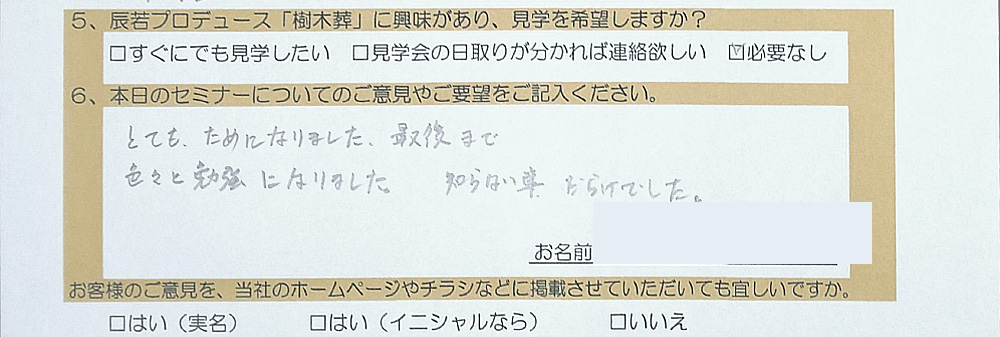 5、辰若プロデュース「樹木葬」に興味があり、見学を希望しますか？
□すぐにでも見学したい □見学会の日取りが分かれば連絡欲しい ☑必要なし
6、本日のセミナーについてのご意見やご要望をご記入ください。
とても、ためになりました、最後まで
色々と勉強になりました。 知らない事だらけでした。
お名前
お客様のご意見を、当社のホームページやチラシなどに掲載させていただいても宜しいですか。
□はい（実名） □はい（イニシャルなら） □いいえ